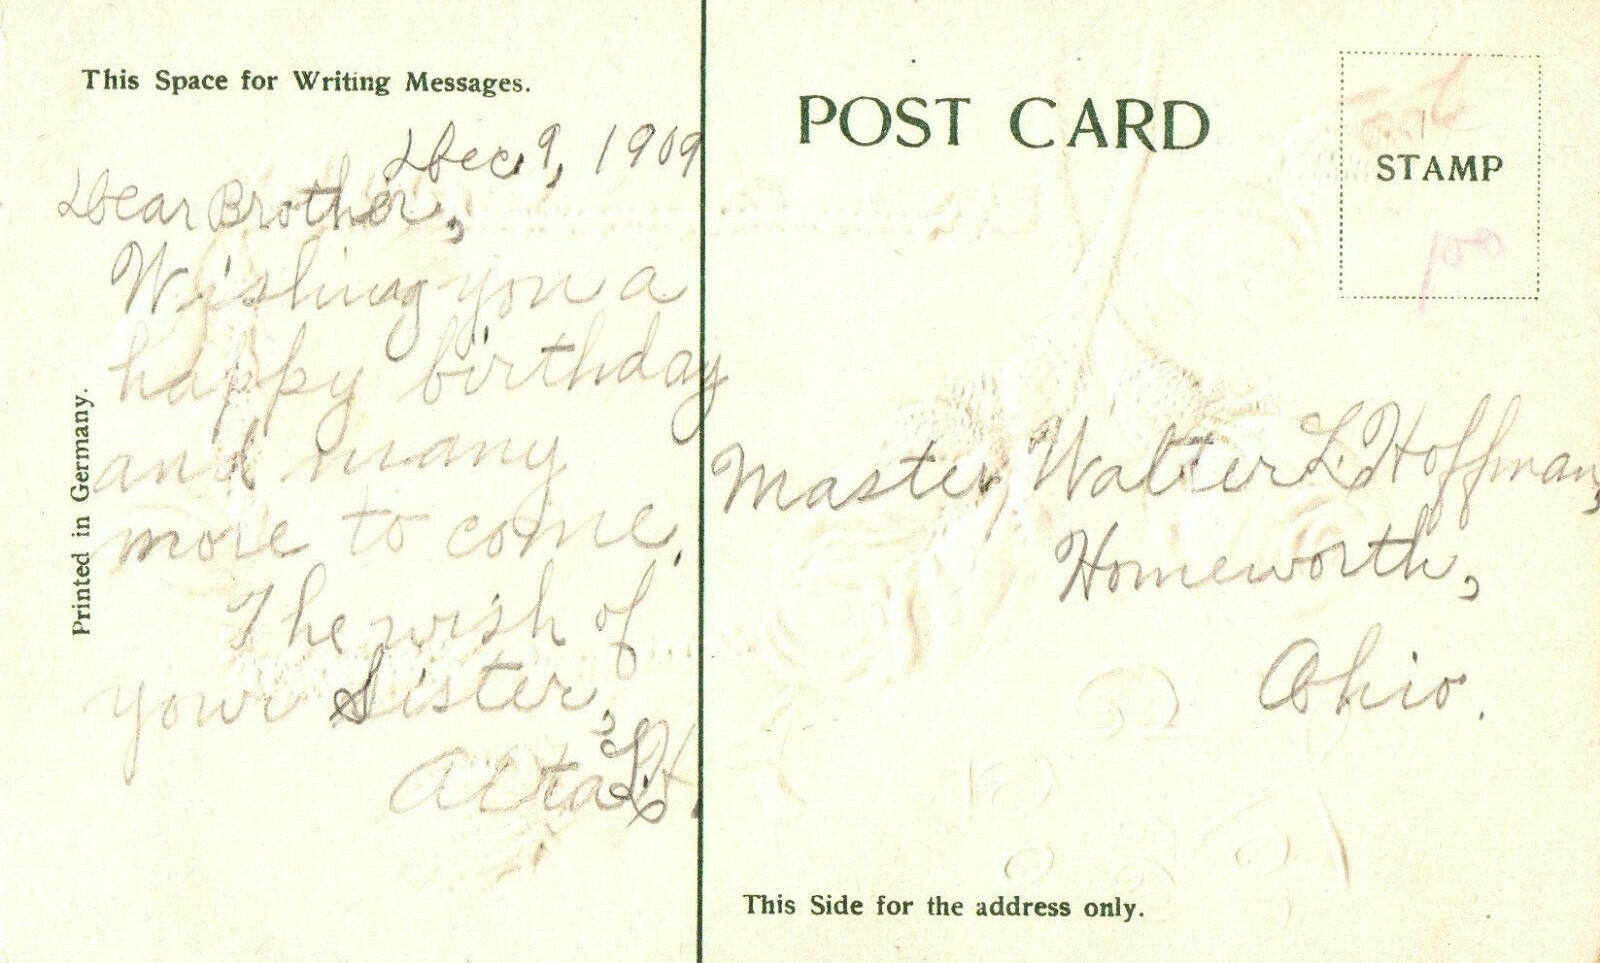 This Space for Writing Messages.
Dec. 9, 1909
Dear Brother,
Wishing you a
happy birthday
and many
more to come.
The wish of
your Sister,
Alta L. H.
Printed in Germany.
POST CARD
STAMP
100
Master Walter L. Hoffman,
Homeworth,
Ohio.
This Side for the address only.